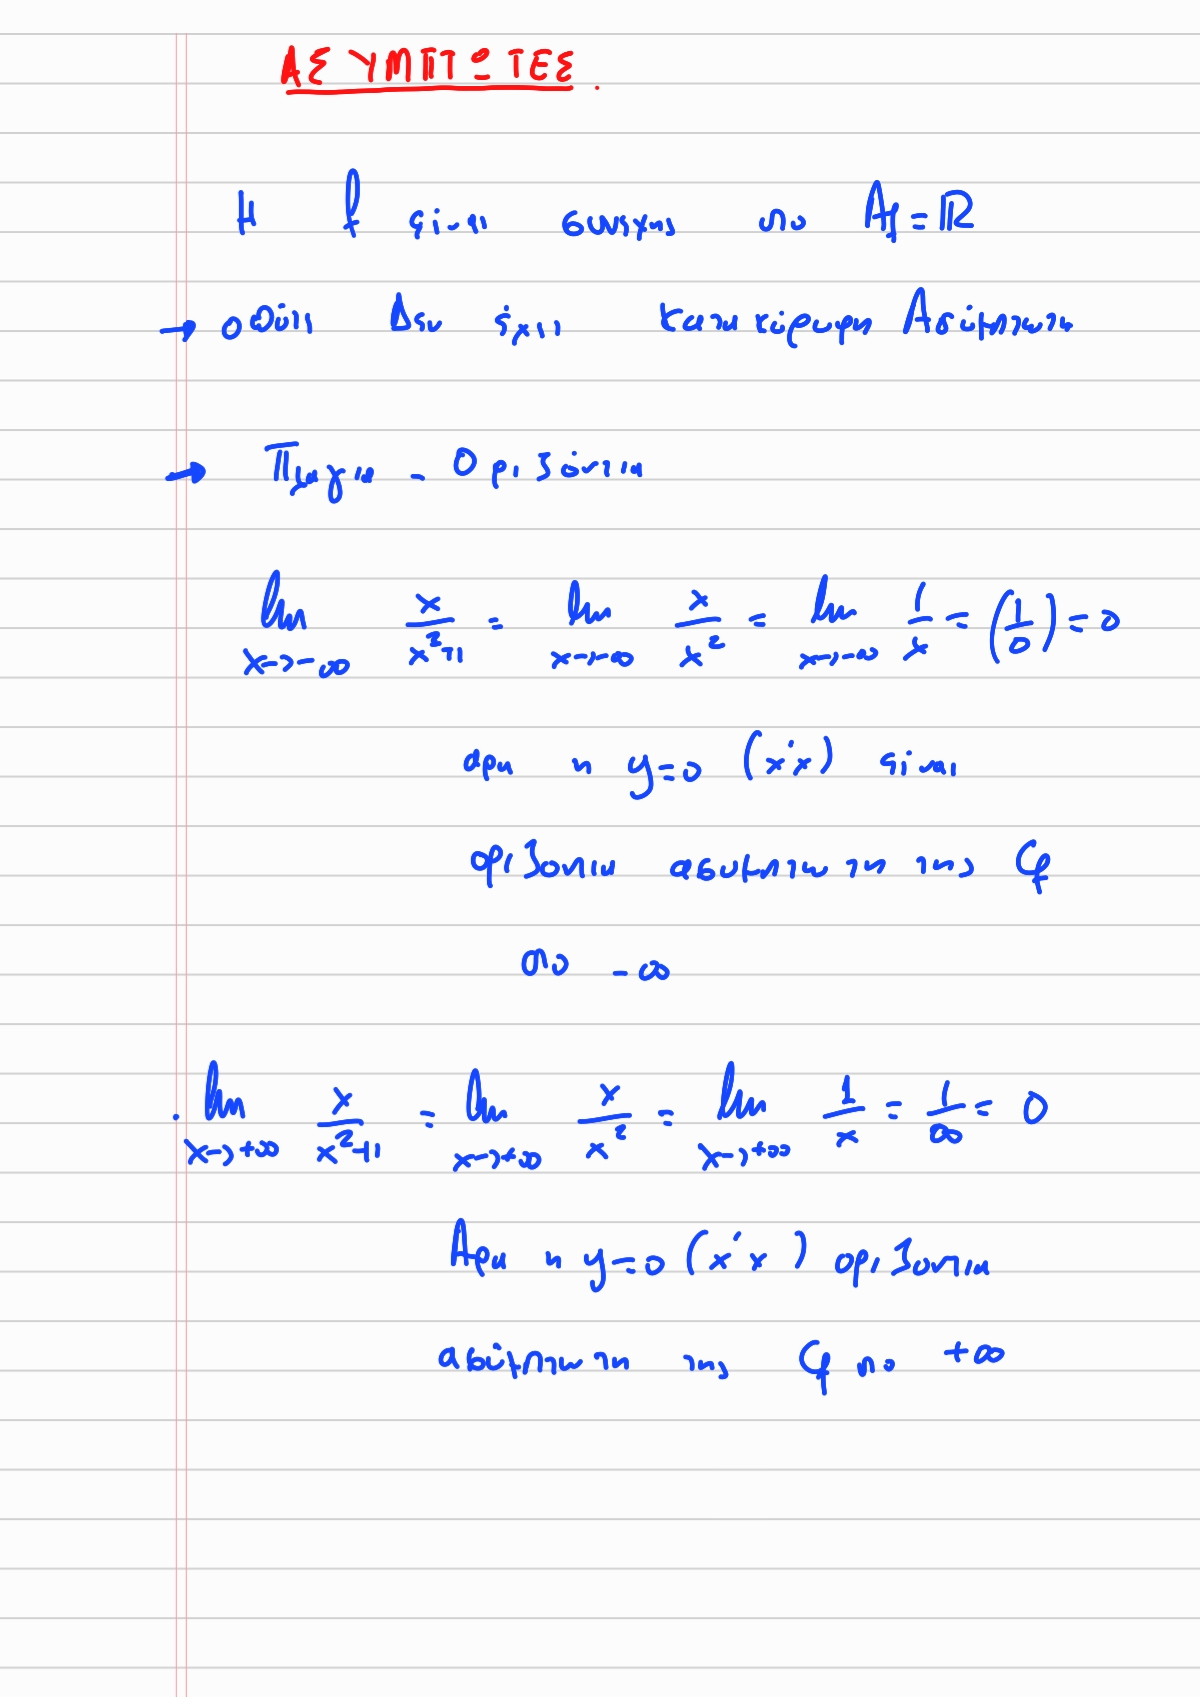 ΑΣΥΜΠΤΩΤΕΣ.
Η f είναι συνεχης στο Af = ℝ
→ οπότε Δεν έχει κατακόρυφη Ασύμπτωτη
→ Πλαγια - Οριζόντια
lim x→-∞ x/(x²+1) = lim x→-∞ x/x² = lim x→-∞ 1/x = (1/0) = 0
αρα η y=0 (x'x) είναι
οριζοντια ασυμπτωτη της Cf
στο -∞
. lim x→+∞ x/(x²+1) = lim x→+∞ x/x² = lim x→+∞ 1/x = 1/∞ = 0
Αρα η y=0 (x'x) οριζοντια
ασύμπτωτη της Cf στο +∞